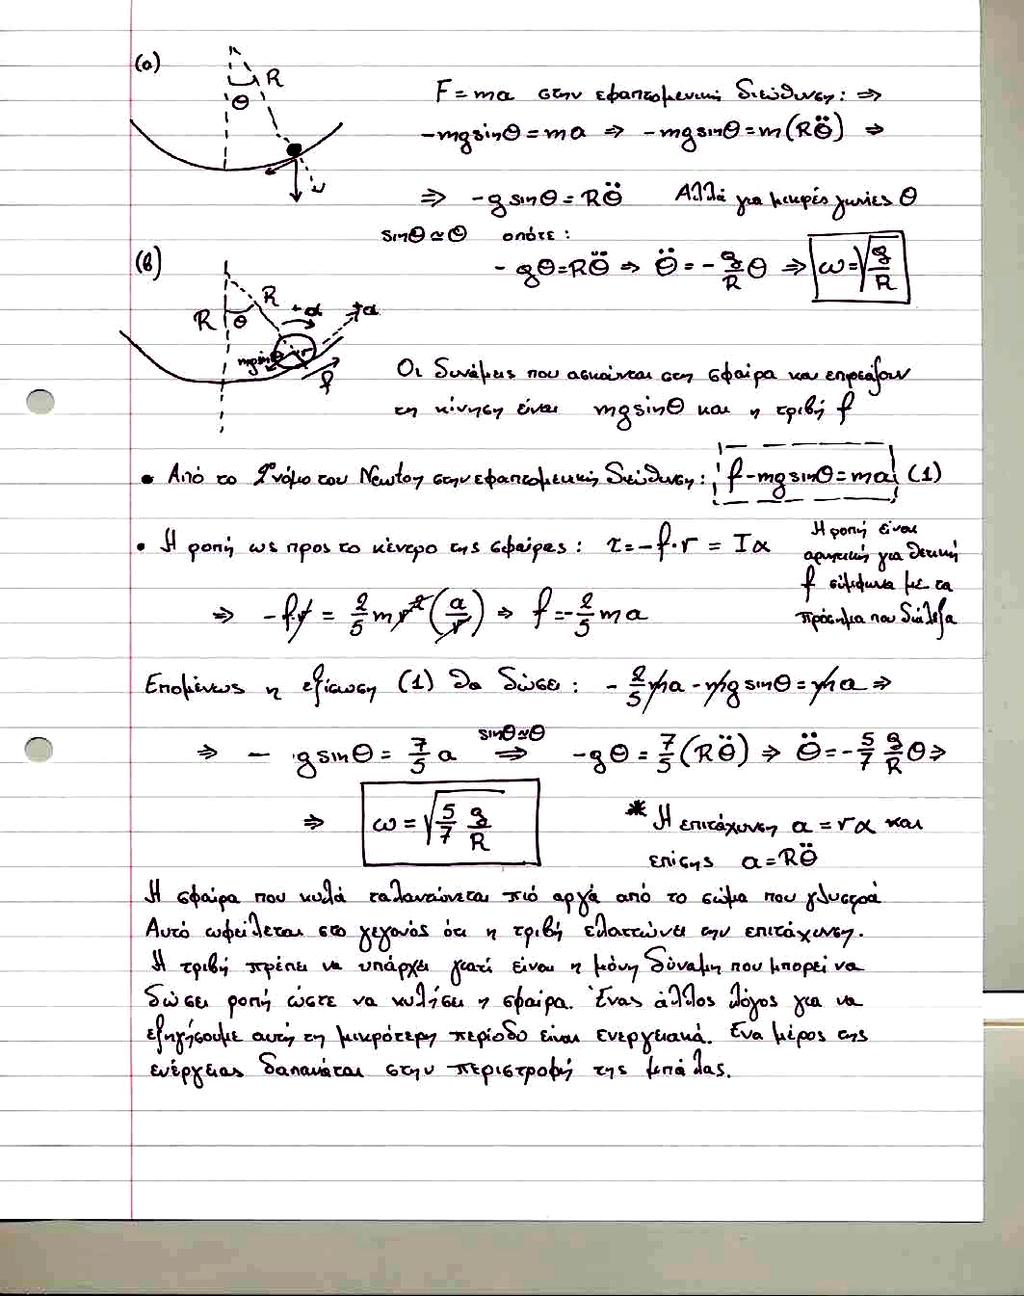 (a)
R
θ
F = ma στην εφαπτομενική διεύθυνση: ⇒
-mgsinθ = ma ⇒ -mgsinθ = m(Rθ̈) ⇒
⇒ -gsinθ = Rθ̈ Αλλά για μικρές γωνίες θ
sinθ ≃ θ οπότε:
- gθ = Rθ̈ ⇒ θ̈ = - g/R θ ⇒ ω = √(g/R)
(β)
R R θ +α +a
mgsinθ r f
Οι δυνάμεις που ασκούνται στη σφαίρα και επηρεάζουν
τη κίνηση είναι mgsinθ και η τριβή f
• Από το 2ο νόμο του Newton στην εφαπτομενική διεύθυνση: f - mgsinθ = ma (1)
• Η ροπή ως προς το κέντρο της σφαίρας: τ = -f·r = Iα
Η ροπή είναι
αρνητική για θετική
f σύμφωνα με τα
πρόσημα που διάλεξα
⇒ -f·r = 2/5 mr²(a/r) ⇒ f = -2/5 ma
Επομένως η εξίσωση (1) θα δώσει: - 2/5 ma - mgsinθ = ma ⇒
⇒ - gsinθ = 7/5 a sinθ≃θ ⇒ -gθ = 7/5 (Rθ̈) ⇒ θ̈ = - 5/7 g/R θ ⇒
⇒ ω = √(5/7 g/R)
* Η επιτάχυνση a = rα και
επίσης a = Rθ̈
Η σφαίρα που κυλά ταλαντώνεται πιό αργά από το σώμα που γλυστρά
Αυτό ωφείλεται στο γεγονός ότι η τριβή ελαττώνει την επιτάχυνση.
Η τριβή πρέπει να υπάρχει γιατί είναι η μόνη δύναμη που μπορεί να
δώσει ροπή ώστε να κυλήσει η σφαίρα. Ένας άλλος λόγος για να
εξηγήσουμε αυτή τη μικρότερη περίοδο είναι ενεργειακά. Ένα μέρος της
ενέργειας δαπανάται στην περιστροφή της μπάλας.